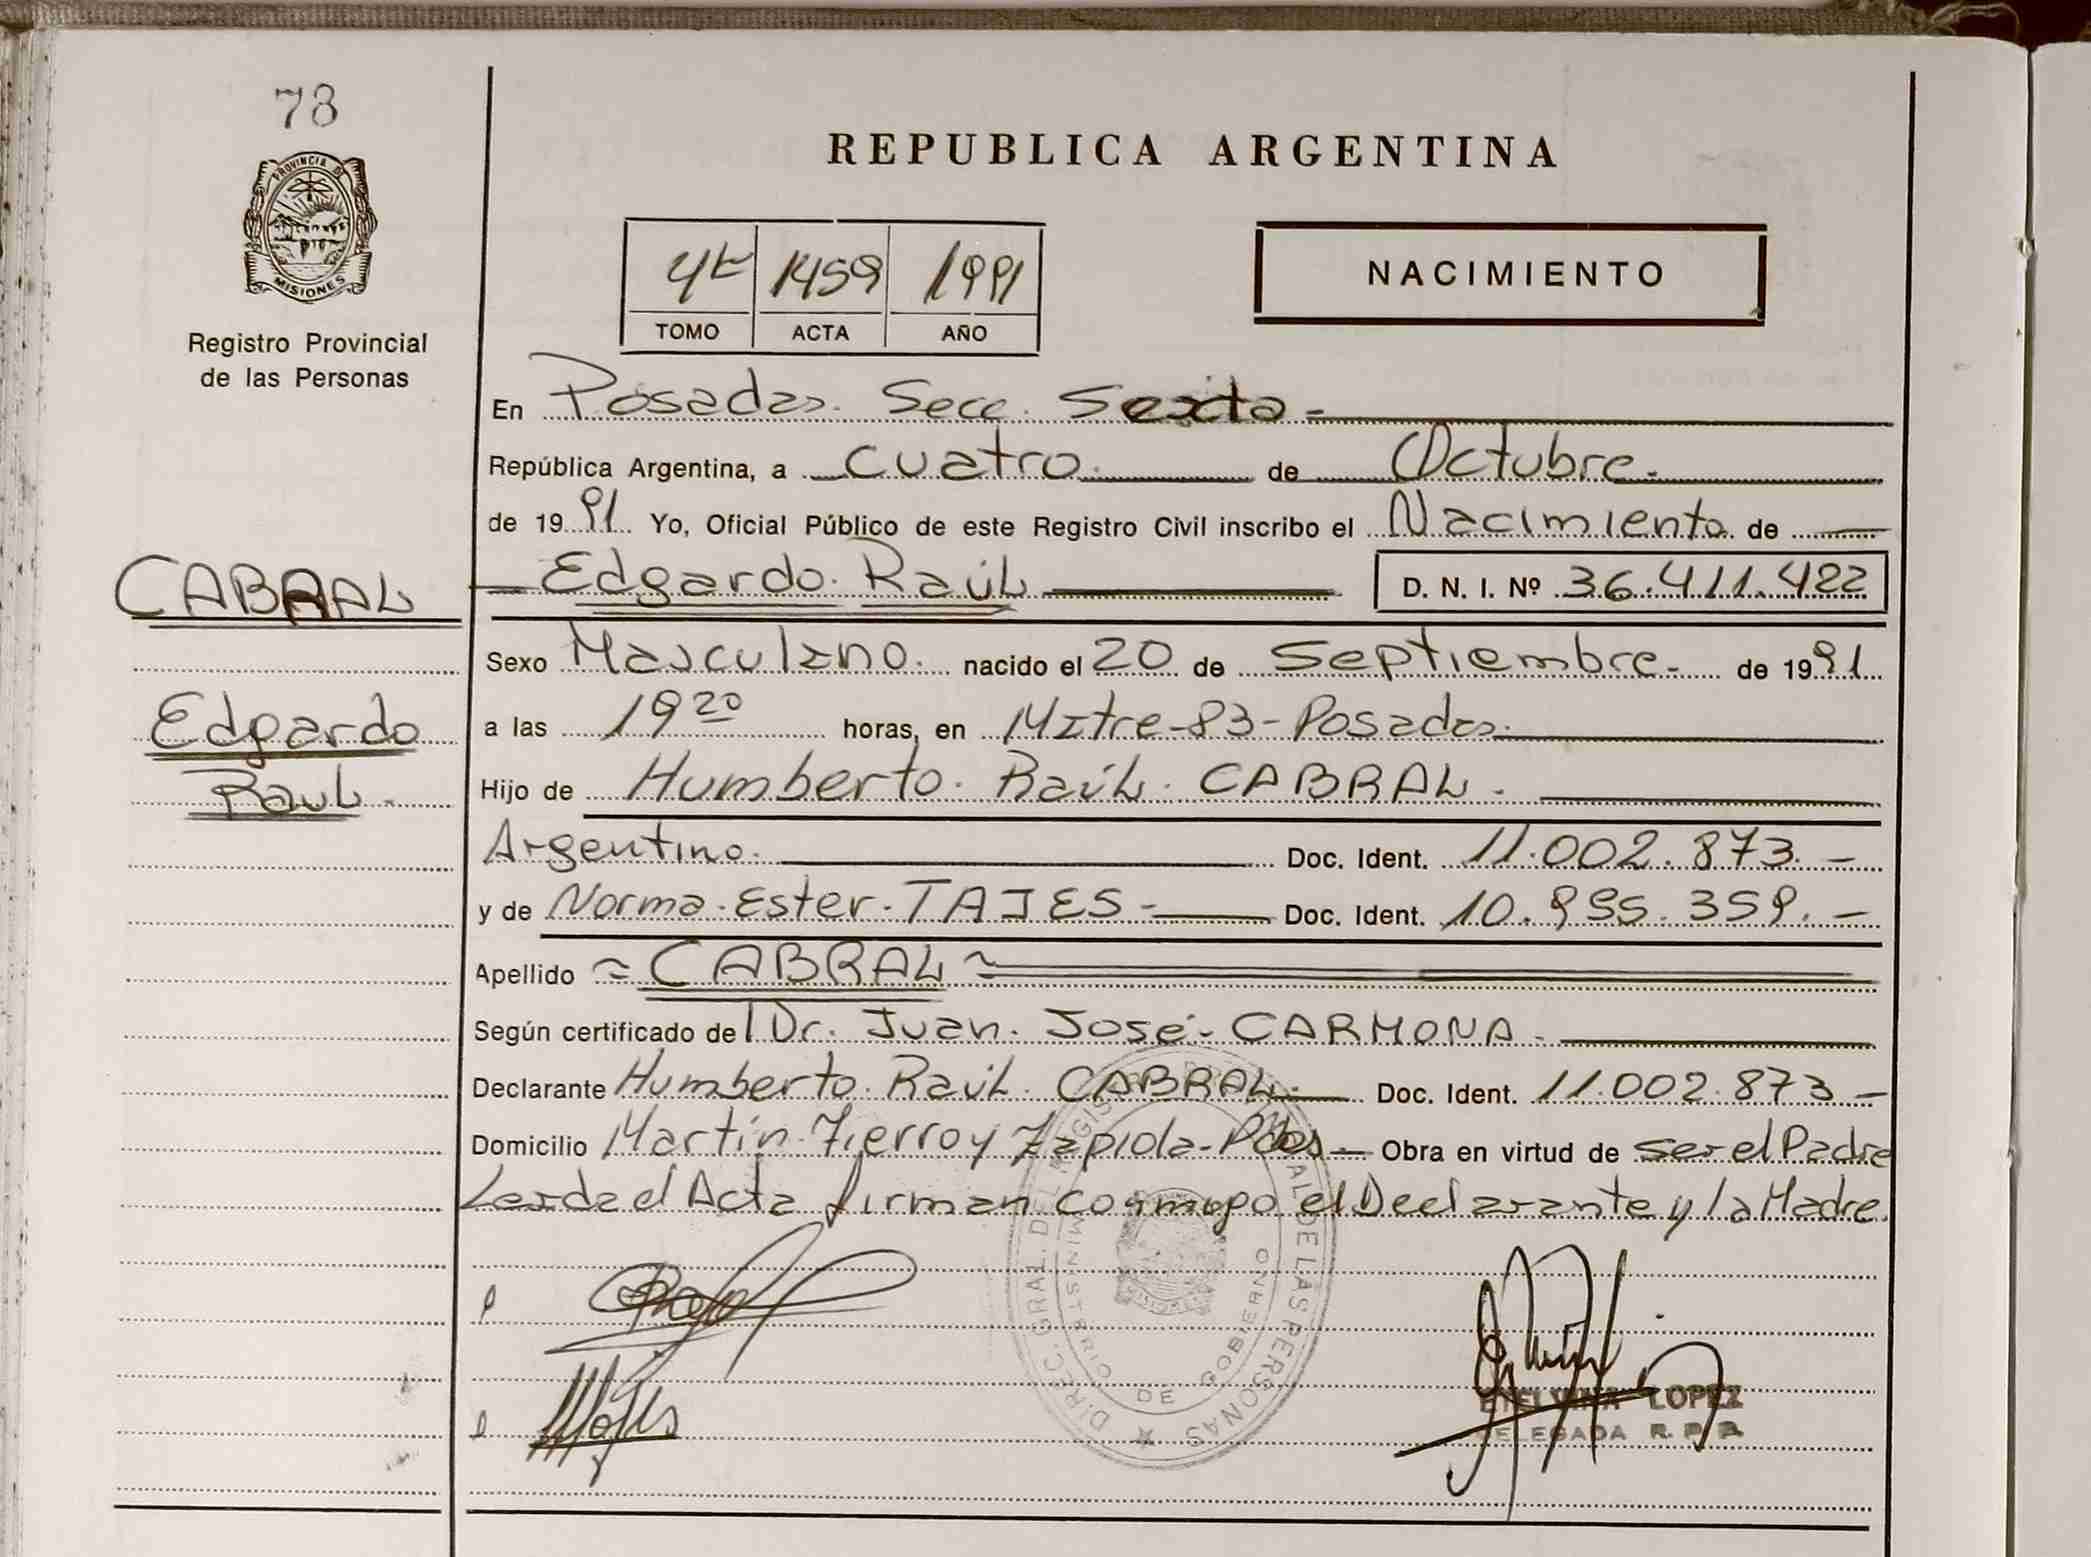 78
PROVINCIA DE
MISIONES
Registro Provincial
de las Personas
REPUBLICA ARGENTINA
4t 1459 1991
TOMO ACTA AÑO
NACIMIENTO
En Posadas. Secc. Sexta-
República Argentina, a cuatro. de Octubre.
de 1991 Yo, Oficial Público de este Registro Civil inscribo el Nacimiento de
Edgardo Raúl D. N. I. Nº 36.411.422
CABRAL
Edgardo
Raul.
Sexo Masculino. nacido el 20 de Septiembre. de 1991
a las 19 20 horas, en Mitre-83-Posadas.
Hijo de Humberto. Raúl. CABRAL.
Argentino. Doc. Ident. 11.002.873.-
y de Norma. Ester. TAJES- Doc. Ident. 10.995.359.-
Apellido =CABRAL=
Según certificado del Dr. Juan. José. CARMONA.
Declarante Humberto. Raúl. CABRAL- Doc. Ident. 11.002.873-
Domicilio Martín Fierro y Zapiola-Pdas- Obra en virtud de ser el Padre
Leida el Acta firman conmigo el Declarante y la Madre.
DIREC. GRAL. DEL REGISTRO DE LAS PERSONAS
MINISTERIO DE GOBIERNO
LOPEZ
DELEGADA R. P. P.